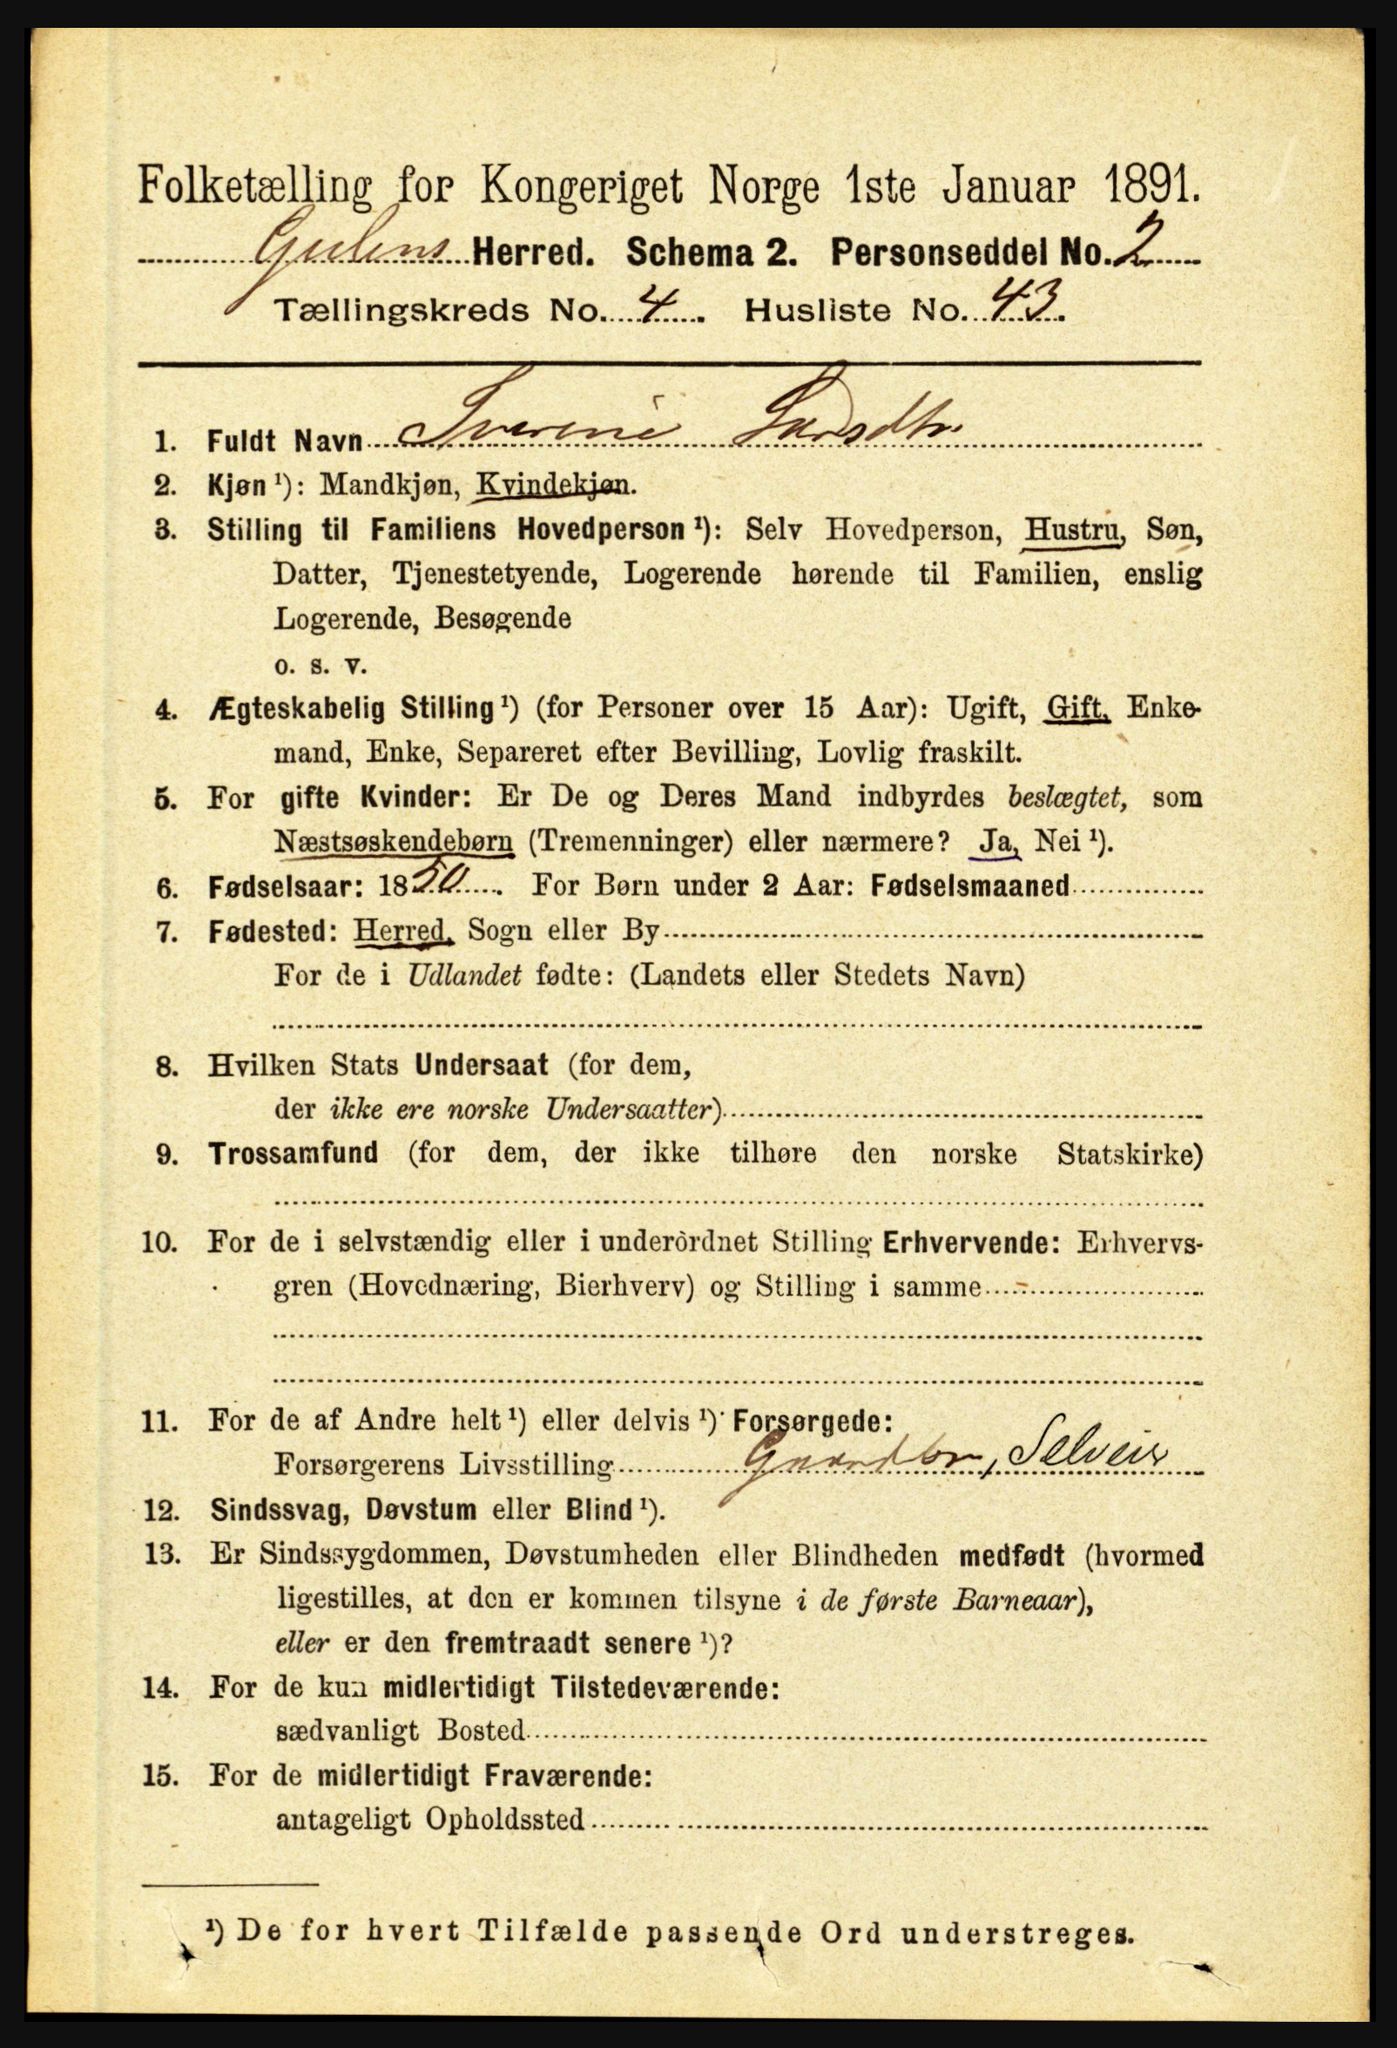 Folketælling for Kongeriget Norge 1ste Januar 1891.
Gulens Herred. Schema 2. Personseddel No. 2
Tællingskreds No. 4. Husliste No. 43.
1. Fuldt Navn Sverine Larsdtr
2. Kjøn ¹): Mandkjøn, Kvindekjøn.
3. Stilling til Familiens Hovedperson ¹): Selv Hovedperson, Hustru, Søn,
Datter, Tjenestetyende, Logerende hørende til Familien, enslig
Logerende, Besøgende
o. s. v.
4. Ægteskabelig Stilling ¹) (for Personer over 15 Aar): Ugift, Gift, Enke-
mand, Enke, Separeret efter Bevilling, Lovlig fraskilt.
5. For gifte Kvinder: Er De og Deres Mand indbyrdes beslægtet, som
Næstsøskendebørn (Tremenninger) eller nærmere? Ja, Nei ¹).
6. Fødselsaar: 1850. For Børn under 2 Aar: Fødselsmaaned
7. Fødested: Herred, Sogn eller By
For de i Udlandet fødte: (Landets eller Stedets Navn)
8. Hvilken Stats Undersaat (for dem,
der ikke ere norske Undersaatter)
9. Trossamfund (for dem, der ikke tilhøre den norske Statskirke)
10. For de i selvstændig eller i underordnet Stilling Erhvervende: Erhvervs-
gren (Hovednæring, Bierhverv) og Stilling i samme -
11. For de af Andre helt ¹) eller delvis ¹) Forsørgede:
Forsørgerens Livsstilling Gaardbr, Selveier
12. Sindssvag, Døvstum eller Blind ¹).
13. Er Sindssygdommen, Døvstumheden eller Blindheden medfødt (hvormed
ligestilles, at den er kommen tilsyne i de første Barneaar),
eller er den fremtraadt senere ¹)?
14. For de kun midlertidigt Tilstedeværende:
sædvanligt Bosted
15. For de midlertidigt Fraværende:
antageligt Opholdssted
¹) De for hvert Tilfælde passende Ord understreges.